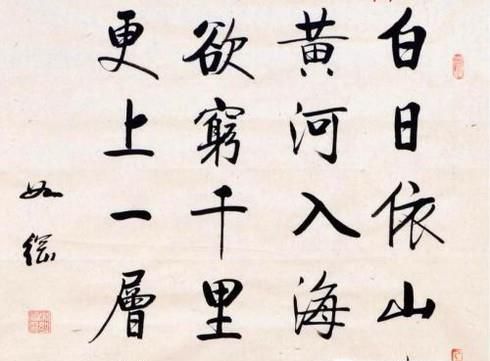 白日依山
黄河入海
欲窮千里
更上一層
如徑